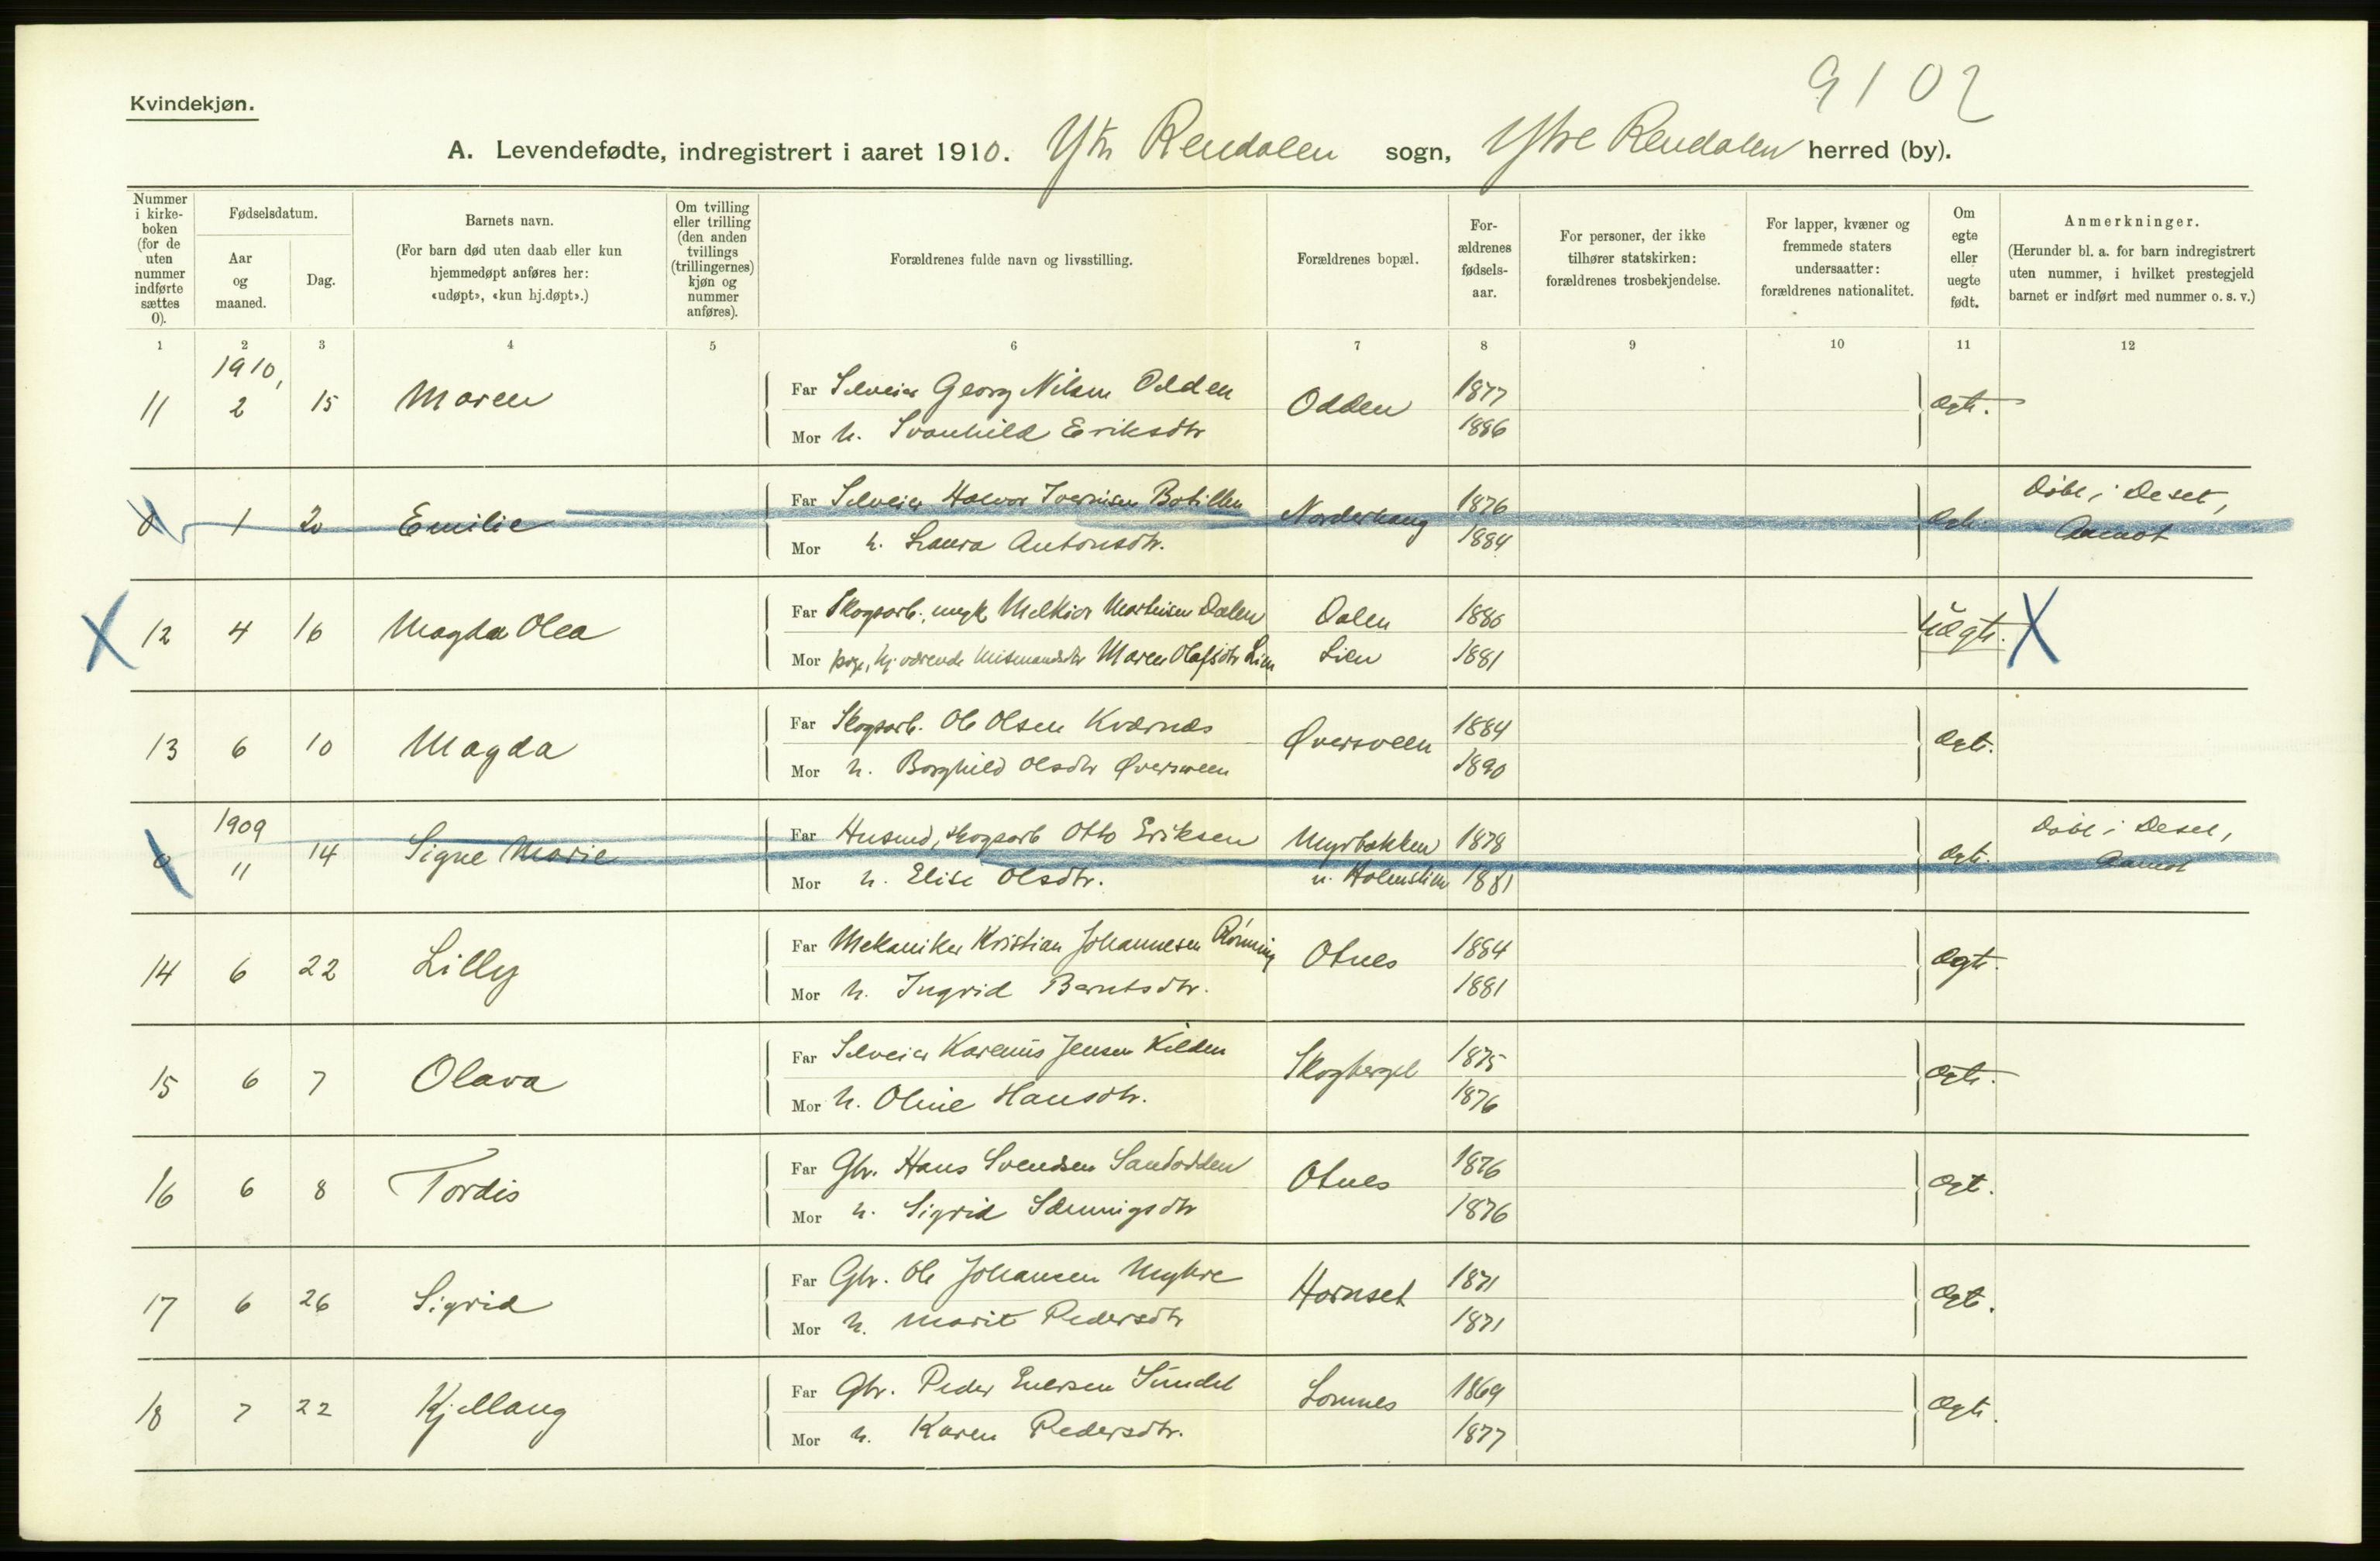 9102
Kvindekjøn.
A. Levendefødte, indregistrert i aaret 1910. Ytr Rendalen sogn, Ytre Rendalen herred (by).
Nummer i kirke-boken (for de uten nummer indførte sættes 0).
Fødselsdatum.
Aar og maaned.
Dag.
Barnets navn.
(For barn død uten daab eller kun hjemmedøpt anføres her: «udøpt», «kun hj.døpt».)
Om tvilling eller trilling (den anden tvillings (trillingernes) kjøn og nummer anføres).
Forældrenes fulde navn og livsstilling.
Forældrenes bopæl.
For-ældrenes fødsels-aar.
For personer, der ikke tilhører statskirken: forældrenes trosbekjendelse.
For lapper, kvæner og fremmede staters undersaatter: forældrenes nationalitet.
Om egte eller uegte født.
Anmerkninger.
(Herunder bl. a. for barn indregistrert uten nummer, i hvilket prestegjeld barnet er indført med nummer o. s. v.)
1 2 3 4 5 6 7 8 9 10 11 12
1910,
11 2 15 Maren Far Selveier Georg Nilsen Odden Odden 1877 ægte.
Mor h. Svanhild Eriksdtr 1886
0 1 20 Emilie Far Selveier Halvor Iversen Norderhaug 1876 Døbt i Deset,
Mor h. Laura Antonsdtr. 1884 Aamot
X 12 4 16 Magda Olea Far Skogsarb. ungk Melkior Martinsen Dalen Dalen 1886 Uægte. X
Mor pige, hj. værende Maren Olafsdtr Lien Lien 1881
13 6 10 Magda Far Skogsarb. Ole Olsen Kværnæs Øversveen 1884 ægte.
Mor h. Borghild Olsdtr Øversveen 1890
1909
0 11 14 Signe Marie Far Husmd, skogsarb Otto Eriksen Myrbakken 1878 ægte. Døbt i Deset,
Mor h. Elise Olsdtr. u. Holmstien 1881 Aamot
14 6 22 Lilly Far Mekaniker Kristian Johannesen Rønning Otnes 1884 ægte.
Mor h. Ingrid Berntsdtr. 1881
15 6 7 Olava Far Selveier Karenus Jensen Kilden Skogberget 1875 ægte.
Mor h. Oline Hansdtr. 1876
16 6 8 Tordis Far Gbr. Hans Svendsen Sandodden Otnes 1876 ægte.
Mor h. Sigrid Sæmingsdtr 1876
17 6 26 Sigrid Far Gbr. Ole Johansen Myhre Hornset 1871 ægte.
Mor h. Marit Pedersdtr 1871
18 7 22 Kjellaug Far Gbr. Peder Enersen Sundet Lomnes 1869 ægte.
Mor h. Karen Pedersdtr. 1877